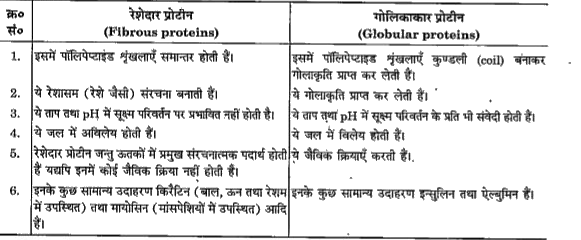 क्र० सं० रेशेदार प्रोटीन (Fibrous proteins) गोलिकाकार प्रोटीन (Globular proteins)
1. इसमें पॉलिपेप्टाइड शृंखलाएँ समान्तर होती हैं। इसमें पॉलिपेप्टाइड शृंखलाएँ कुण्डली (coil) बनाकर
गोलाकृति प्राप्त कर लेती हैं।
2. ये रेशासम (रेशे जैसी) संरचना बनाती हैं। ये गोलाकृति प्राप्त कर लेती हैं।
3. ये ताप तथा pH में सूक्ष्म परिवर्तन पर प्रभावित नहीं होती है। ये ताप तथा pH में सूक्ष्म परिवर्तन के प्रति भी संवेदी होती हैं।
4. ये जल में अविलेय होती हैं। ये जल में विलेय होती हैं।
5. रेशेदार प्रोटीन जन्तु ऊतकों में प्रमुख संरचनात्मक पदार्थ होती ये जैविक क्रियाएँ करती हैं।
हैं यद्यपि इनमें कोई जैविक क्रिया नहीं होती है।
6. इनके कुछ सामान्य उदाहरण किरैटिन (बाल, ऊन तथा रेशम इनके कुछ सामान्य उदाहरण इन्सुलिन तथा ऐल्बुमिन हैं।
में उपस्थित) तथा मायोसिन (मांसपेशियों में उपस्थित) आदि
हैं।